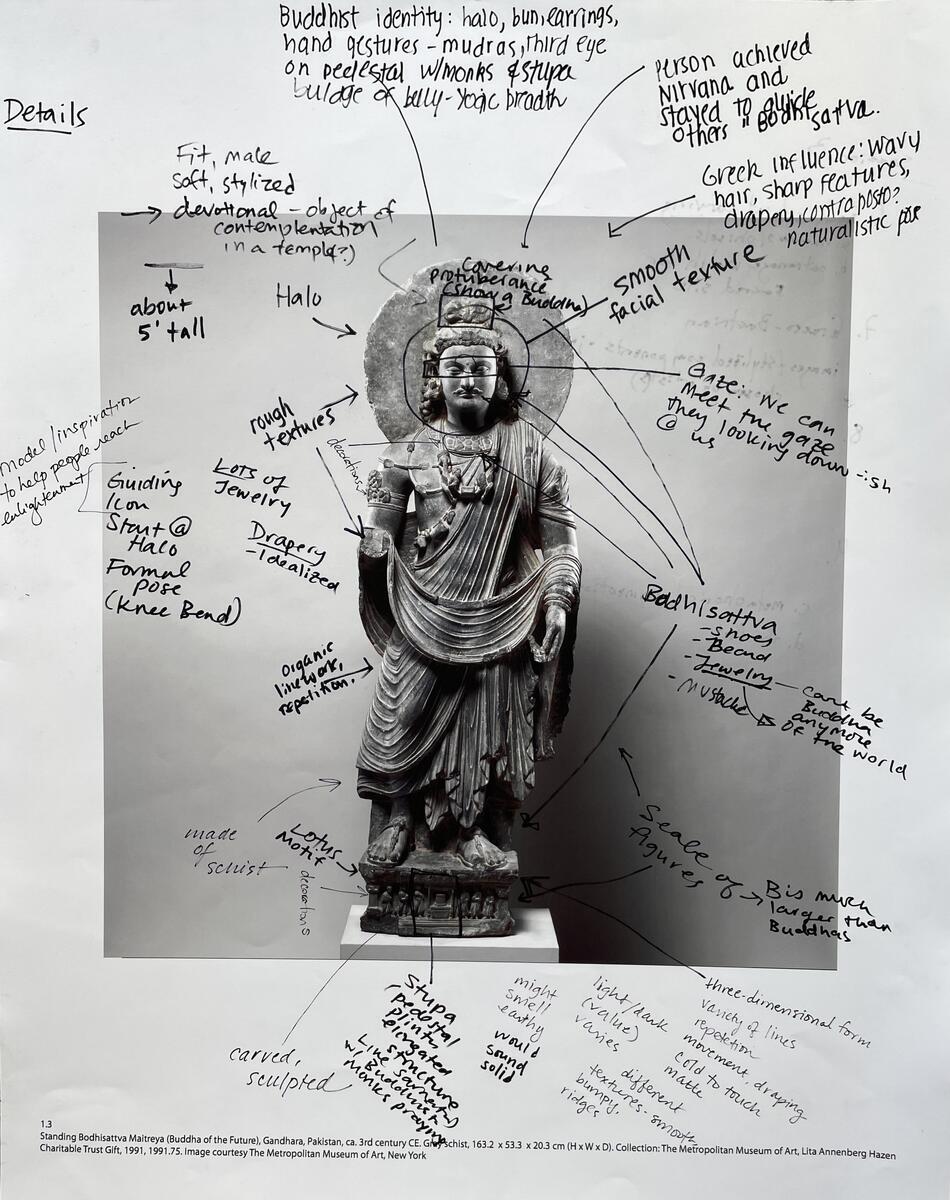 Buddhist identity: halo, bun, earrings,
hand gestures - mudras, third eye
on pedestal w/monks & stupa
buldge of belly - yogic breadth
Person achieved
Nirvana and
stayed to guide
others " Bodhisattva.
Details
Fit, male
Soft, stylized
→ devotional - object of
contemplentation
in a temple(?)
Greek influence: wavy
hair, sharp features,
drapery, contraposto?
naturalistic pose
about
5' tall
Halo
Covering
protuberance
(show a Buddha)
smooth
facial texture
Gaze: We can
meet the gaze
they looking down -ish
@ us
rough
textures
decorations
model/inspiration
to help people reach
enlightenment
Guiding
Icon
Start @
Halo
Formal
pose
(Knee Bend)
Lots of
Jewelry
Drapery
- Idealized
Organic
linework,
repetition.
Bodhisattva
- shoes
- Beard
- Jewelry
- Mustache
cant be
Buddha
anymore
Of the world
made
of
schist
Lotus
Motif
decorations
Scale of
figures
B is much
larger than
Buddhas
carved,
sculpted
Stupa
(pedestal
plinth
elongated
structure
Like Sarnath)
w/ Buddhist
Monks praying
might
smell
earthy
would
sound
solid
light/dark
(value)
varies
different
textures - smooth
bumpy,
ridges
three-dimensional form
variety of lines
repetition
movement, draping
cold to touch
matte
1.3
Standing Bodhisattva Maitreya (Buddha of the Future), Gandhara, Pakistan, ca. 3rd century CE. Gray schist, 163.2 x 53.3 x 20.3 cm (H x W x D). Collection: The Metropolitan Museum of Art, Lita Annenberg Hazen
Charitable Trust Gift, 1991, 1991.75. Image courtesy The Metropolitan Museum of Art, New York